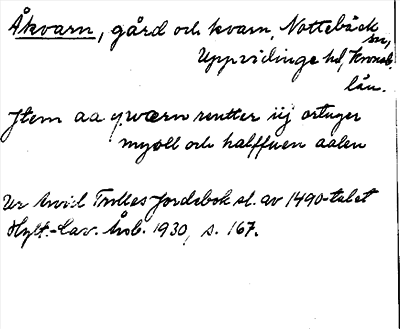 Åkvarn, gård och kvarn, Nottebäck
sn,
Uppvidinge hd, Kronob.
län.
Jtem aa qwærn rentter iij ortuger
myoll och halffuen aalen
Ur Arvid Trolles Jordebok sl. av 1490-talet
Hylt.-Cav. Årsb. 1930, s. 167.